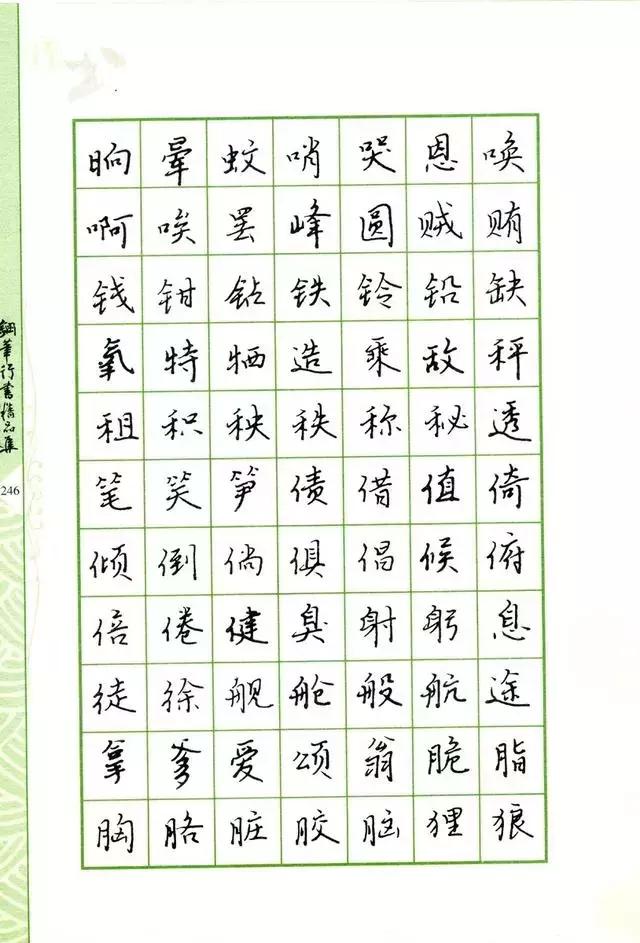 晌晕蚊哨哭恩唤
啊唉罢峰圆贼贿
钱钳钻铁铃铅缺
氧特牺造乘敌秤
租积秧秩称秘透
笔笑笋债借值倚
倾倒倘俱倡候俯
倍倦健臭射躬息
徒徐舰舱般航途
拿爹爱颂翁脆脂
胸胳脏胶脑狸狼
钢笔行书精品集
246